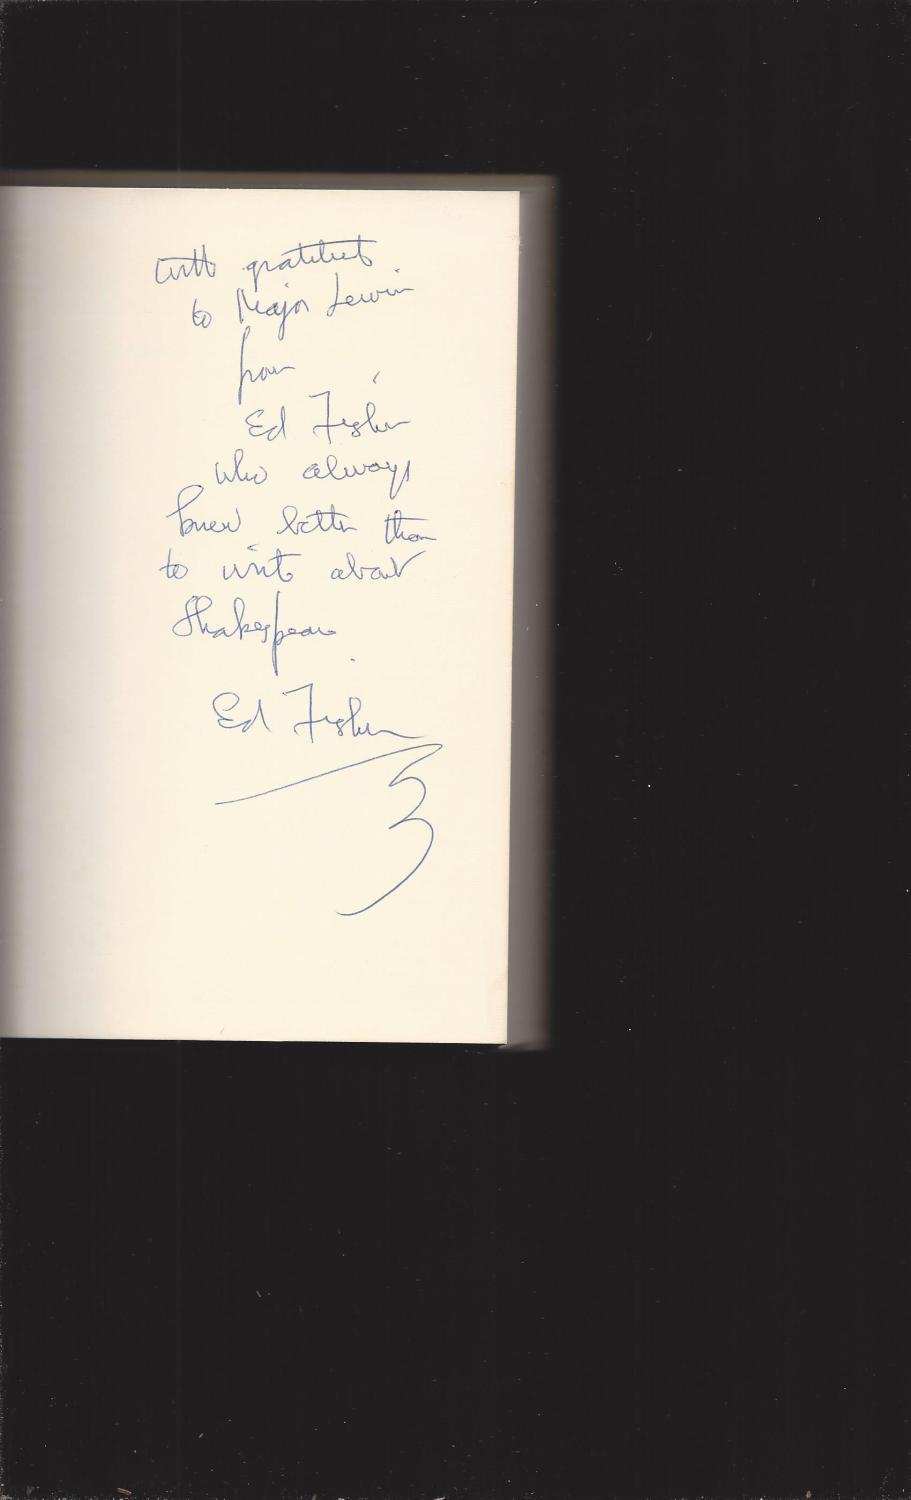 with gratitude
to Major Lewin
from
Ed Fisher
who always
knew better than
to write about
Shakespeare
Ed Fisher